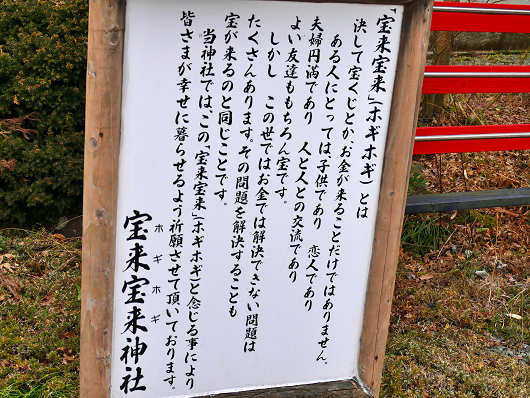 「宝来宝来」(ホギホギ)とは
決して宝くじとか、お金が来ることだけではありません。
ある人にとっては子供であり 恋人であり
夫婦円満であり 人と人との交流であり
よい友達ももちろん宝です。
しかし この世ではお金では解決できない問題は
たくさんあります。その問題を解決することも
宝が来るのと同じことです。
当神社では、この「宝来宝来」(ホギホギ)と念じる事により
皆さまが幸せに暮らせるよう祈願させて頂いております。
宝来宝来神社
ホギホギ